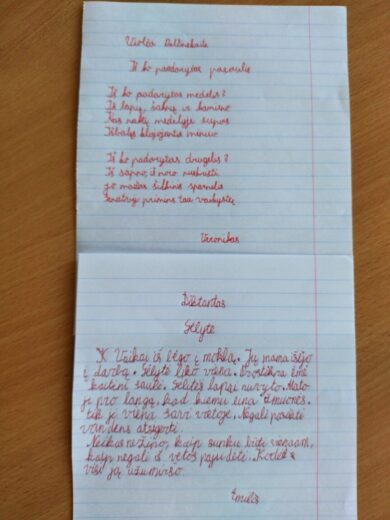 Violeta Palčinskaitė
Iš ko padarytas pasaulis
Iš ko padarytas medelis?
Iš lapų, šakų ir kamieno
Kas naktį medelyje supas
Išbalęs klajojantis mėnuo
Iš ko padarytas drugelis?
Iš sapno, iš noro nuskristi
Jo mažas šilkinis sparnelis
primins tau vaikystę
Veronikas
Diktantas
Gėlytė
Vaikai iš bėgo į mokslą. Jų mama išėjo
į darbą. Gėlytė liko viena. Per stiklą ėmė
kaitinti saulė. Gėlitės lapai nuvyto. Mato
ji pro langą, kad kiemu eina žmonės.
Bet ji viena savi vietoje. Negali paeiti
vandens atsigerti.
Neikas nežino, kaip sunku būti vienam,
kaip negali iš vietos pajudėti. Kodėl
visi ją užmiršo.
Emilis